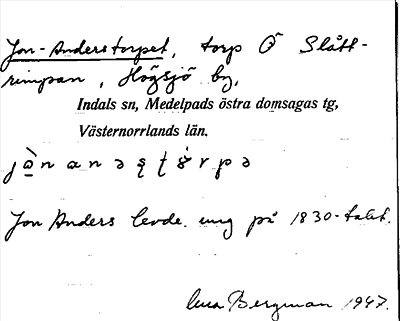 Jon-Anderstorpet, torp Ö Slått-
rimpan, Högsjö by,
Indals sn, Medelpads östra domsagas tg,
Västernorrlands län.
Jon Anders levde ung på 1830-talet.
Bergman 1947.